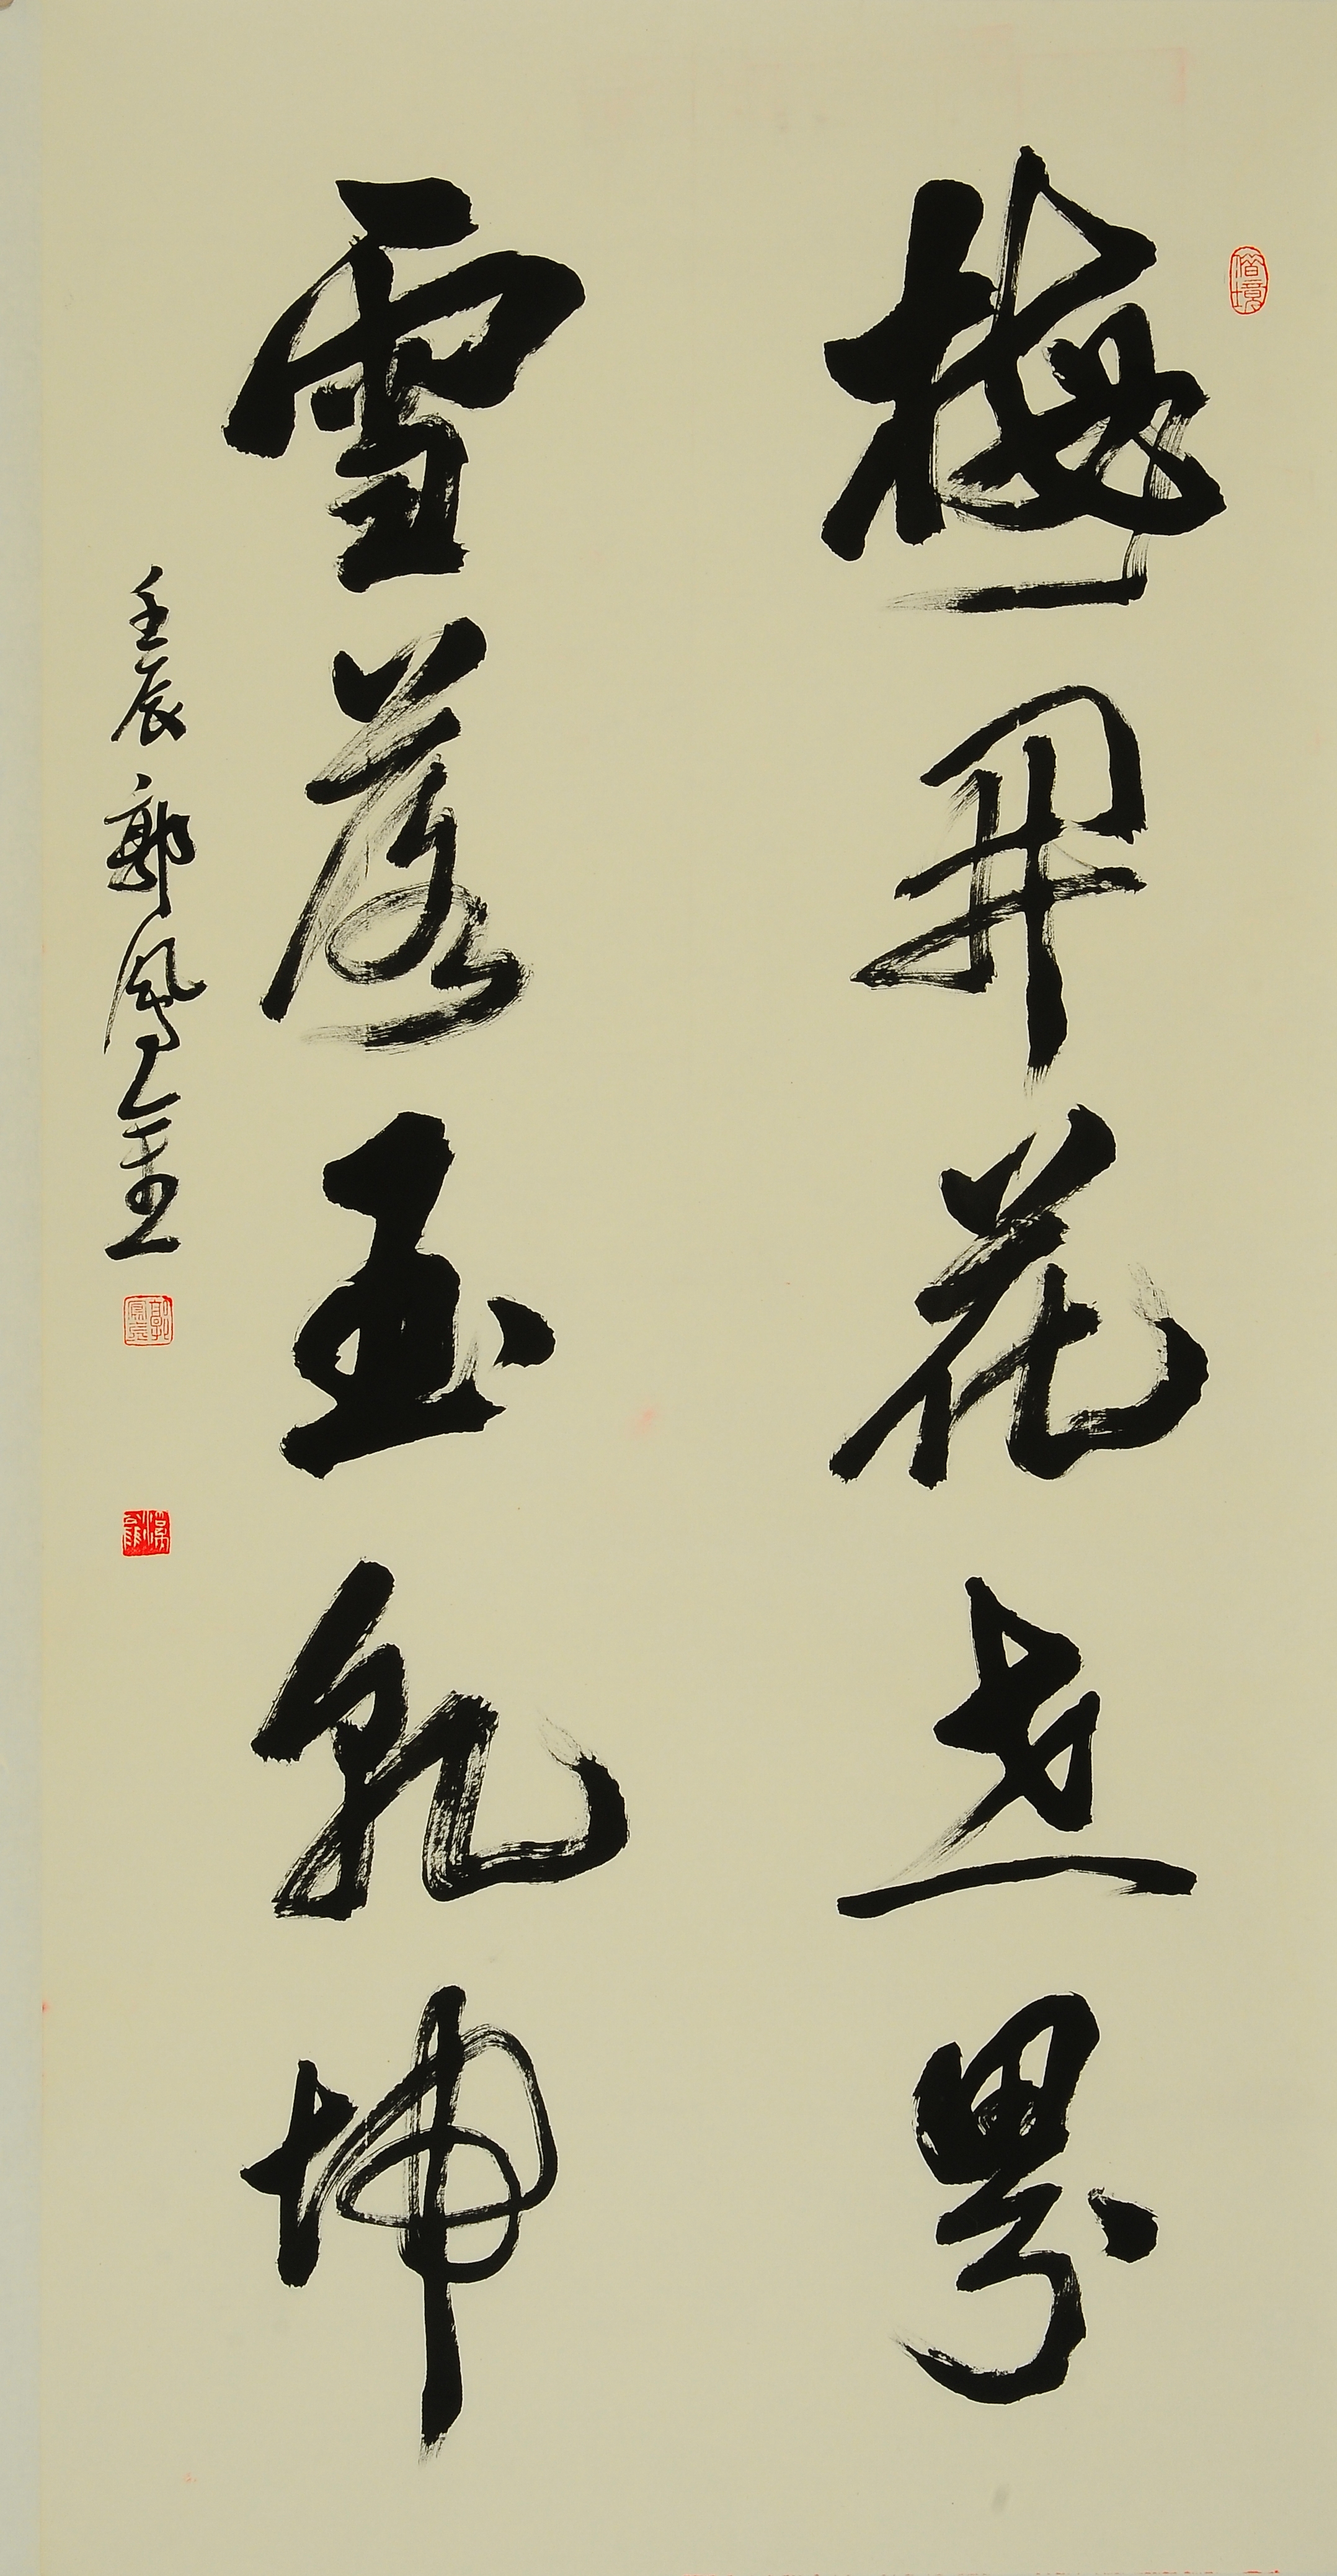 梅開花世界
雪落玉乾坤
壬辰郭鳳